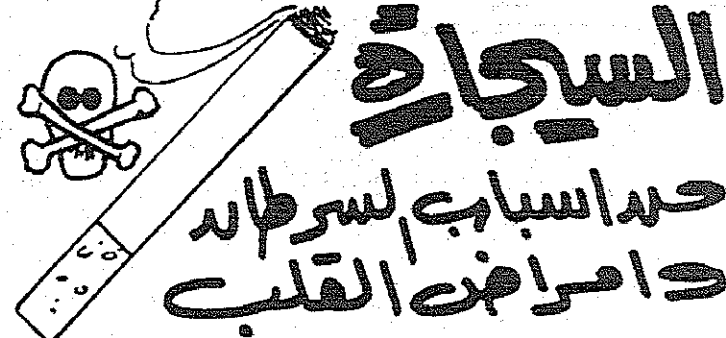 السيجارة
من اسباب السرطان
و امراض القلب